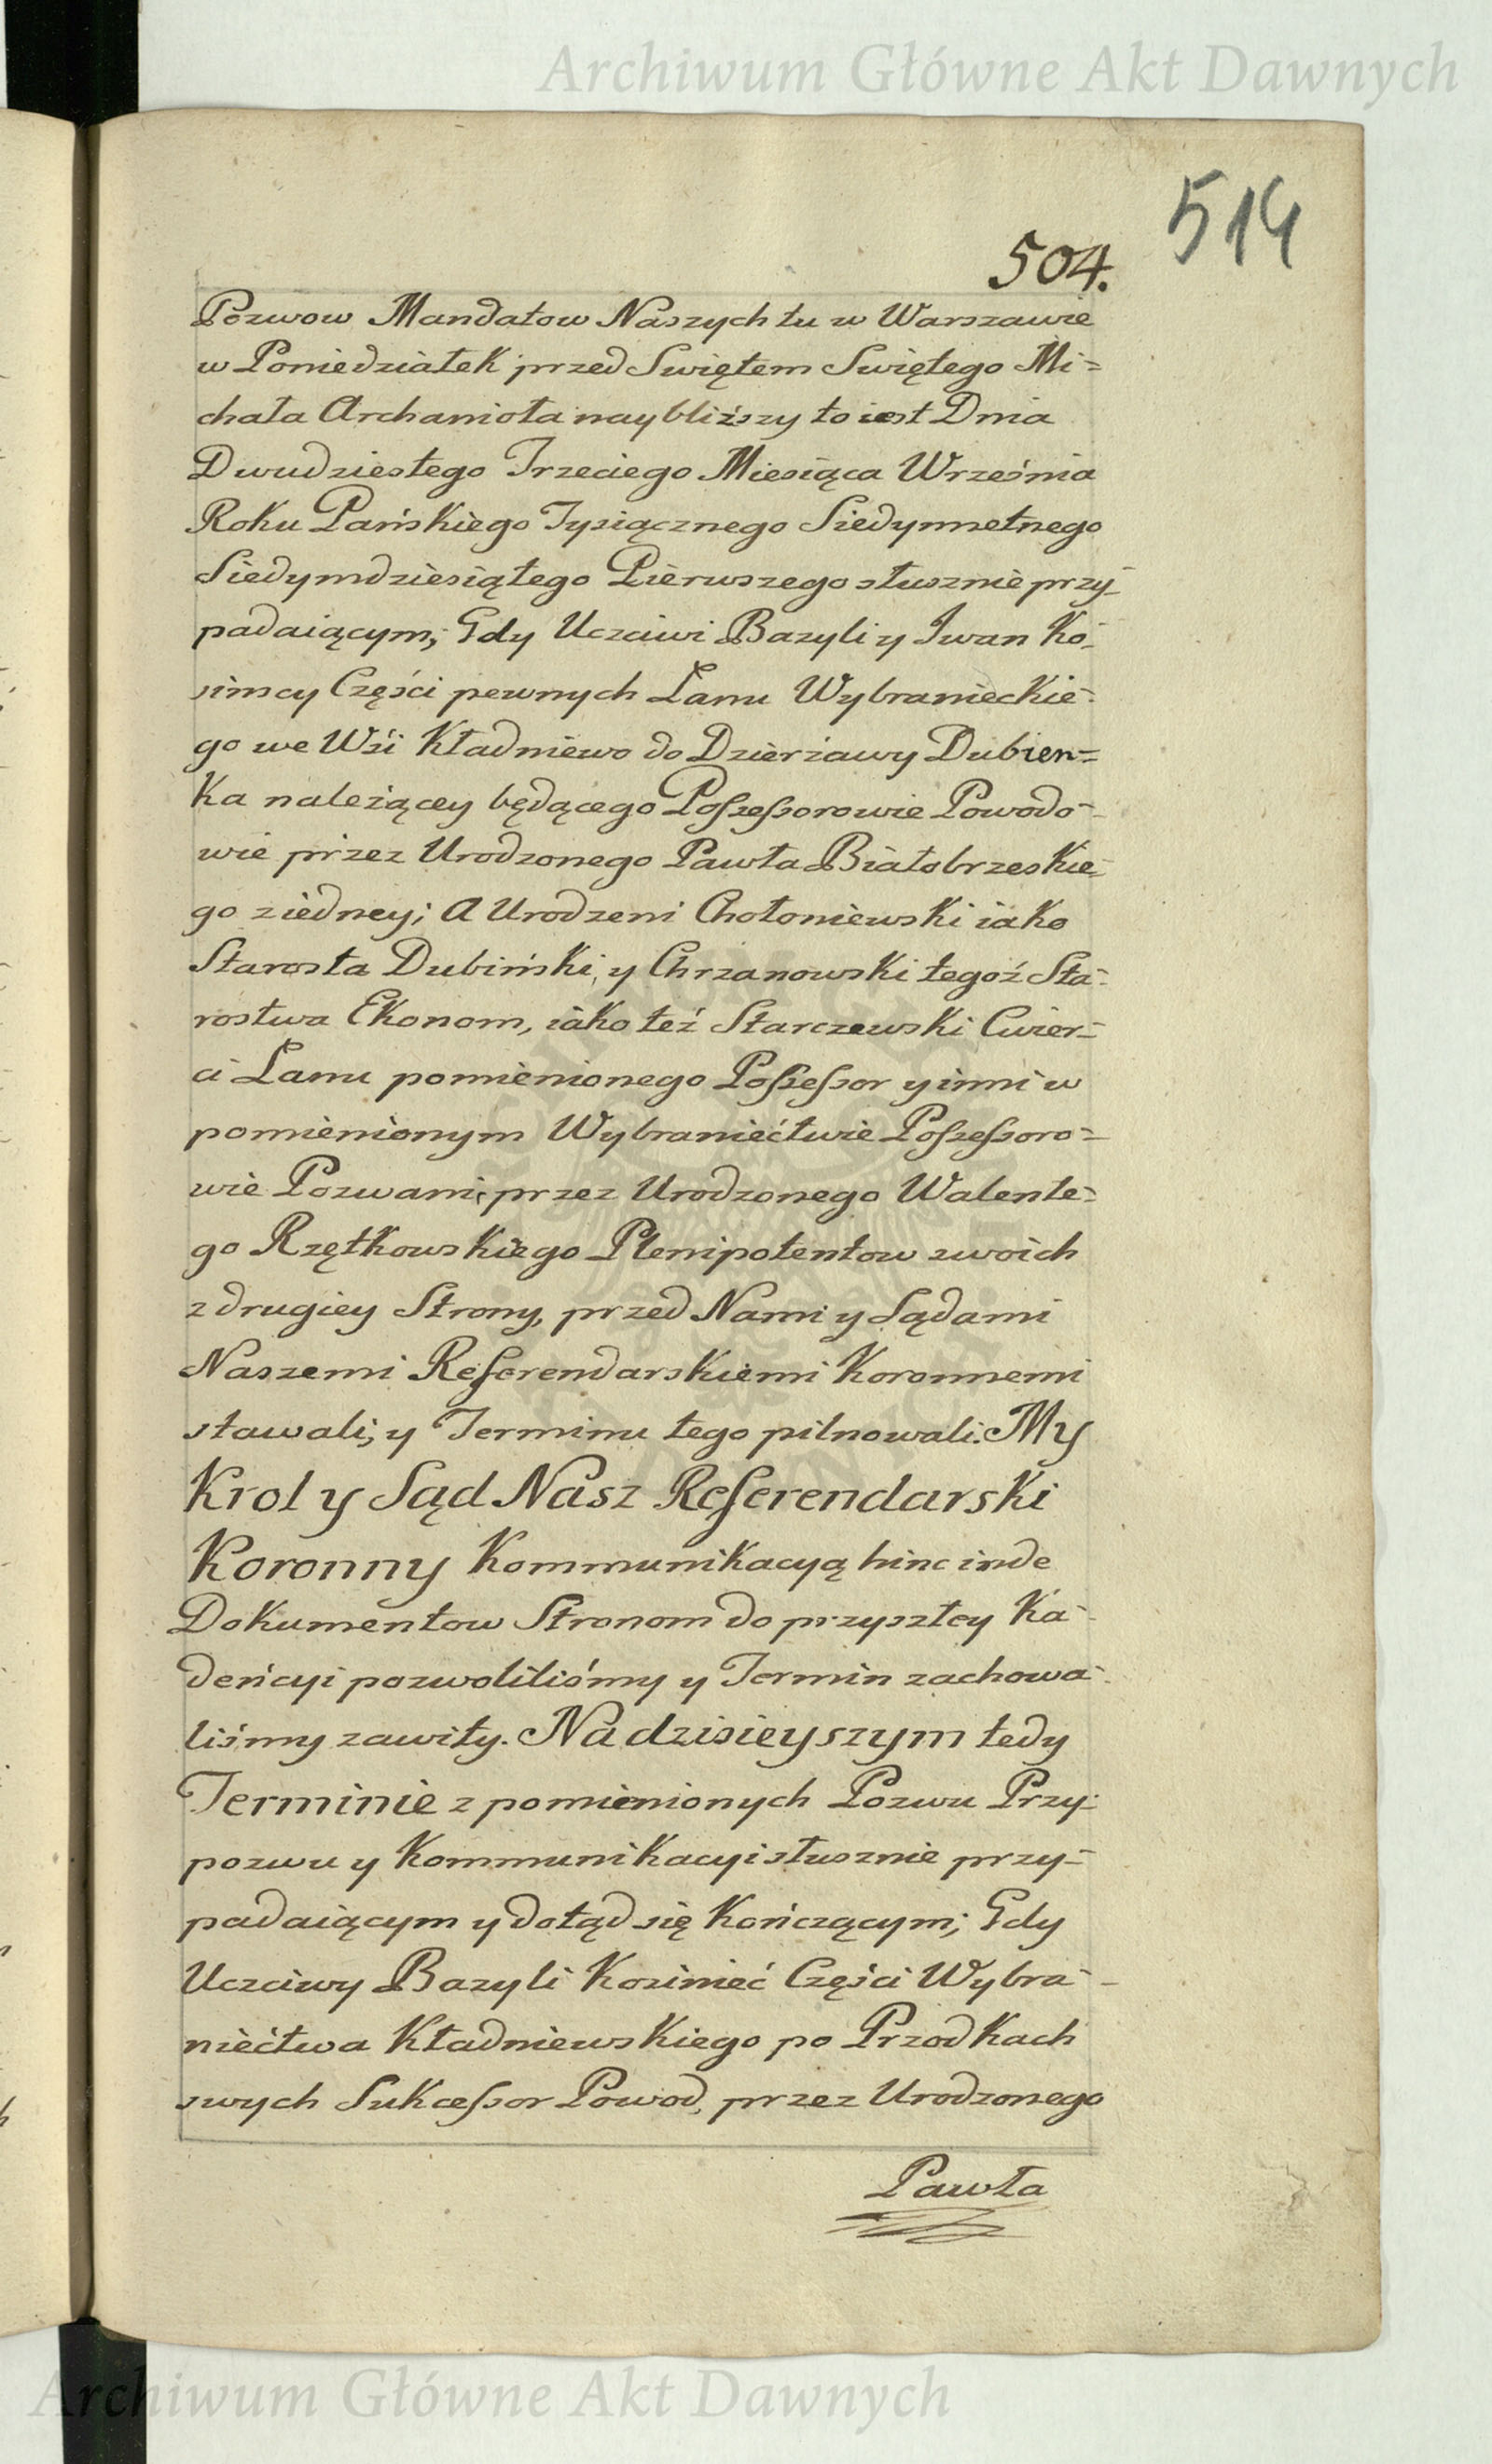 Archiwum Główne Akt Dawnych
514
504.
Pozwow Mandatow Naszych tu w Warszawie
w Poniedziałek przed Swiętem Swiętego Mi=
chała Archanioła naybliższy to iest Dnia
Dwudziestego Trzeciego Miesiąca Wrześnía
Roku Pańskiego Tysiącznego Siedymnetnego
Siedymdziesiątego Pierwszego słusznie przy-
padaiącym; Gdy Uczciwi Bazyli y Iwan Ko-
simcy Części pewnych Łanu Wybranieckie-
go we Wśi Kładniewo do Dzierżawy Dubien=
ka należącey będącego Possessorowie Powodo-
wie przez Urodzonego Pawła Białobrzeskie-
go z iedney; A Urodzeni Chołoniewski iako
Starosta Dubiński, y Chrzanowski tegoż Sta-
rostwa Ekonom, iako też Starczewski Cwier-
ci Łanu pomienionego Possessor y inni w
pomienionym Wybraniećtwie Possessoro=
wie Pozwani, przez Urodzonego Walente-
go Rzętkowskiego Plenipotentow swoich
z drugiey Strony, przed Nami y Sądami
Naszemi Referendarskiemi Koronnemi
stawali; y Terminu tego pilnowali. My
Krol y Sąd Nasz Referendarski
Koronny Kommunikacyą hinc inde
Dokumentow Stronom do przyszłey Ka-
deńcyi pozwoliliśmy y Termin zachowa-
liśmy zawity. Na dzisieyszym tedy
Terminie z pomienionych Pozwu Przy-
pozwu y Kommunikacyi słusznie przy-
padaiącym y dotąd się kończącym; Gdy
Uczciwy Bazyli Kozimieć Części Wybra-
niećtwa Kładniewskiego po Przodkach
swych Sukcessor Powod, przez Urodzonego
Pawła
Archiwum Główne Akt Dawnych